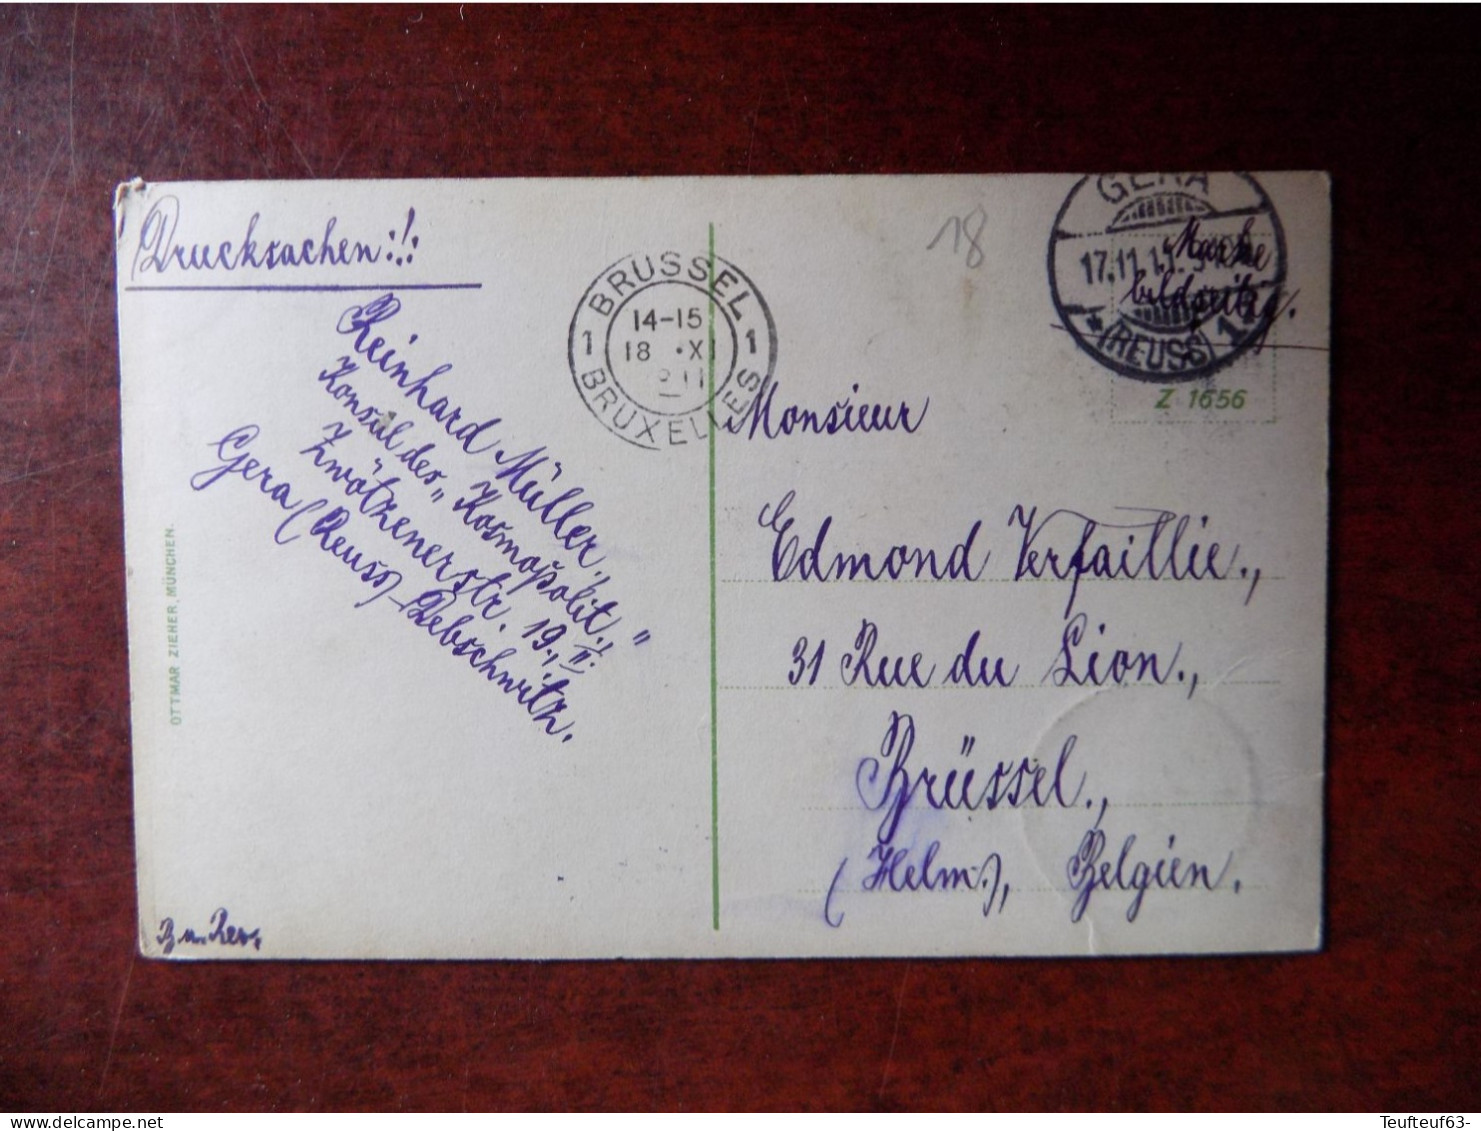 Drucksachen:!:
Reinhard Müller,
Konsul des „Kosmopolit."
Zwötzenerstr. 19., II.
Gera (Reuss)-Debschwitz.
B u. Res.
OTTMAR ZIEHER, MÜNCHEN.
BRUSSEL
1 14-15 1
18 XI
BRUXELLES
18
GERA
17.11.11.
(REUSS)
* 1.
Marke
bildseitig.
Z 1656
Monsieur
Edmond Verfaillie.,
31 Rue du Lion.,
Brüssel.,
(Helm.), Belgien.
www.delcampe.net
Teufteuf63-